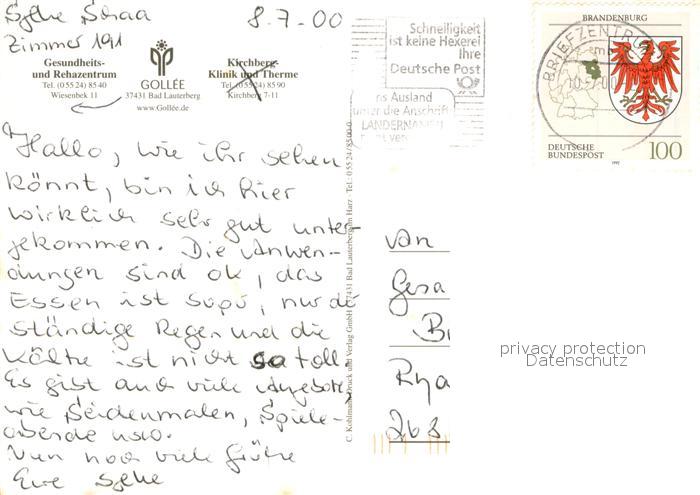 Sylke
8.7.00
Zimmer 191
Gesundheits-
und Rehazentrum
Tel. (0 55 24) 85 40
Wiesenbek 11
GOLLÉE
37431 Bad Lauterberg
www.Gollée.de
Kirchberg-
Klinik und Therme
Tel. (0 55 24) 85 90
Kirchberg 7-11
Schnelligkeit
ist keine Hexerei
Ihre
Deutsche Post
ns Ausland
unter die Anschrift
LANDERNAMEN
BRIEFZENTRUM
BRANDENBURG
DEUTSCHE
BUNDESPOST
1992
100
Hallo, wie ihr sehen
könnt, bin ich hier
wirklich sehr gut unter-
gekommen. Die Anwen-
dungen sind ok, das
Essen ist super, nur der
ständige Regen und die
Kälte ist nicht so toll.
Es gibt auch viele Angebote,
wie Seidenmalen, Spiele-
abende usw.
Nun noch viele Grüße
Eure Sylke
C. Kohlmann Druck und Verlag GmbH 37431 Bad Lauterberg im Harz · Tel.
An
Gesa
privacy protection
Datenschutz